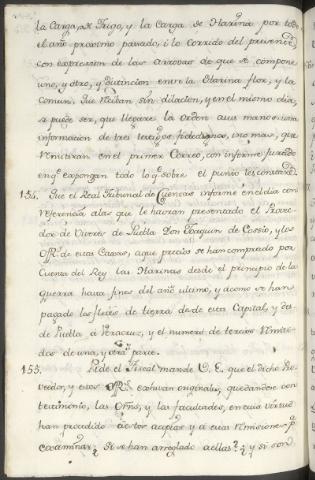 la Carga de Trigo, y la Carga de Harina por todo
el año proximo pasado, i lo corrido del presente,
con expresion de las Arrobas de que se compone
uno, y otro, y distincion entre la Harina flor, y la
comun. Que reciban sin dilacion, y en el mismo dia,
si puede ser, que llegare la Orden a sus manos una
informacion de tres testigos fidedignos, uno mas, que
remitiran en el primer Correo, con informe jurado
en q.e expongan todo lo q.e sobre el punto les constare.
154. Que el Real Tribunal de Cuentas informe en el dia con
referencia a las que le havran presentado el Provee-
dor de Viveres de Puebla Don Joaquin de Cossio, y los
Off.s de estas Caxas, a que precios se han comprado por
Cuenta del Rey las Harinas desde el principio de la
guerra hasta fines del año ultimo, y a como se han
pagado los fletes de tierra desde esta Capital, y des-
de Puebla a Veracruz, y el numero de tercios remiti-
dos de una, y otra parte.
155. Pide el Fiscal mande V. E. que el dicho Pro-
veedor, y estos Off.s exhivan originales, quedandose con
testimonio, las Orns, y las facultades, en cuia virtud
han procedido
examinar, si se han arreglado a ellas? y si son